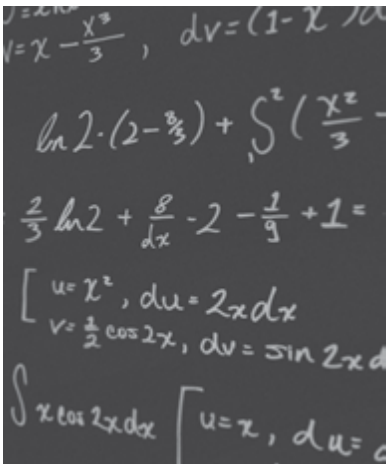 v=x-x³/3, dv=(1-x
ln2·(2-8/3)+∫₁²(x²/3-
-2/3 ln2+8/dx-2-1/9+1=
[u=x², du=2xdx
v=1/2 cos2x, dv=sin2xd
∫x cos2xdx [u=x, du=